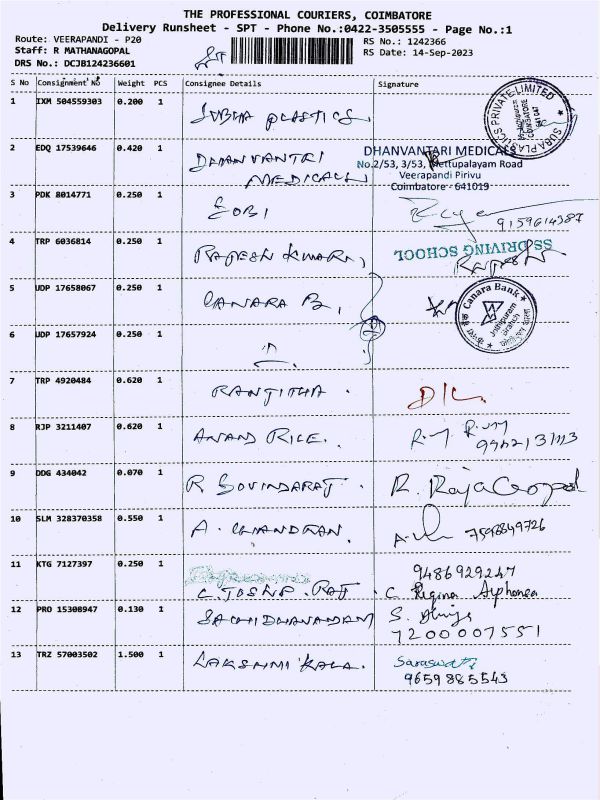 THE PROFESSIONAL COURIERS, COIMBATORE
Delivery Runsheet - SPT - Phone No.:0422-3505555 - Page No.:1
Route: VEERAPANDI - P20
RS No.: 1242366
Staff: R MATHANAGOPAL
RS Date: 14-Sep-2023
DRS No.: DCJB124236601
S No Consignment No Weight PCS Consignee Details Signature
1 IXM 504559303 0.200 1 SUBHA PLASTICS
SUBA PLASTICS PRIVATE LIMITED
2 EDQ 17539646 0.420 1 DHANVANTRI
MEDICALS
DHANVANTARI MEDICALS
No.2/53, 3/53, Mettupalayam Road
Veerapandi Pirivu
Coimbatore - 641019
3 PDK 8014771 0.250 1 GOBI
9159614387
4 TRP 6036814 0.250 1 RAJESH KUMAR
SS DRIVING SCHOOL
5 UDP 17658067 0.250 1 CANARA B,
Canara Bank
Jothipuram
Branch
6 UDP 17657924 0.250 1
7 TRP 4920484 0.620 1 RANJITHA
8 RJP 3211407 0.620 1 ANAND RICE.
9 DDG 434042 0.070 1 R GOVINDARAJ. R. RajaGopal
10 SLM 328370358 0.550 1 A. CHANDRAN. 7598849726
11 KTG 7127397 0.250 1
9486929247
C JOSNP. RAJ. C Regina Alphonea
12 PRO 15308947 0.130 1 SACHIDHANANDAM
7200007551
13 TRZ 57003502 1.500 1 LAKSHMI KALA. Saraswathi
9659885543